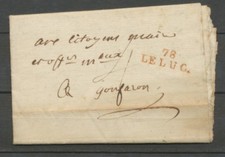 aux Citoyens maire
et offrs mx
78
LE LUC.
A gonfaron